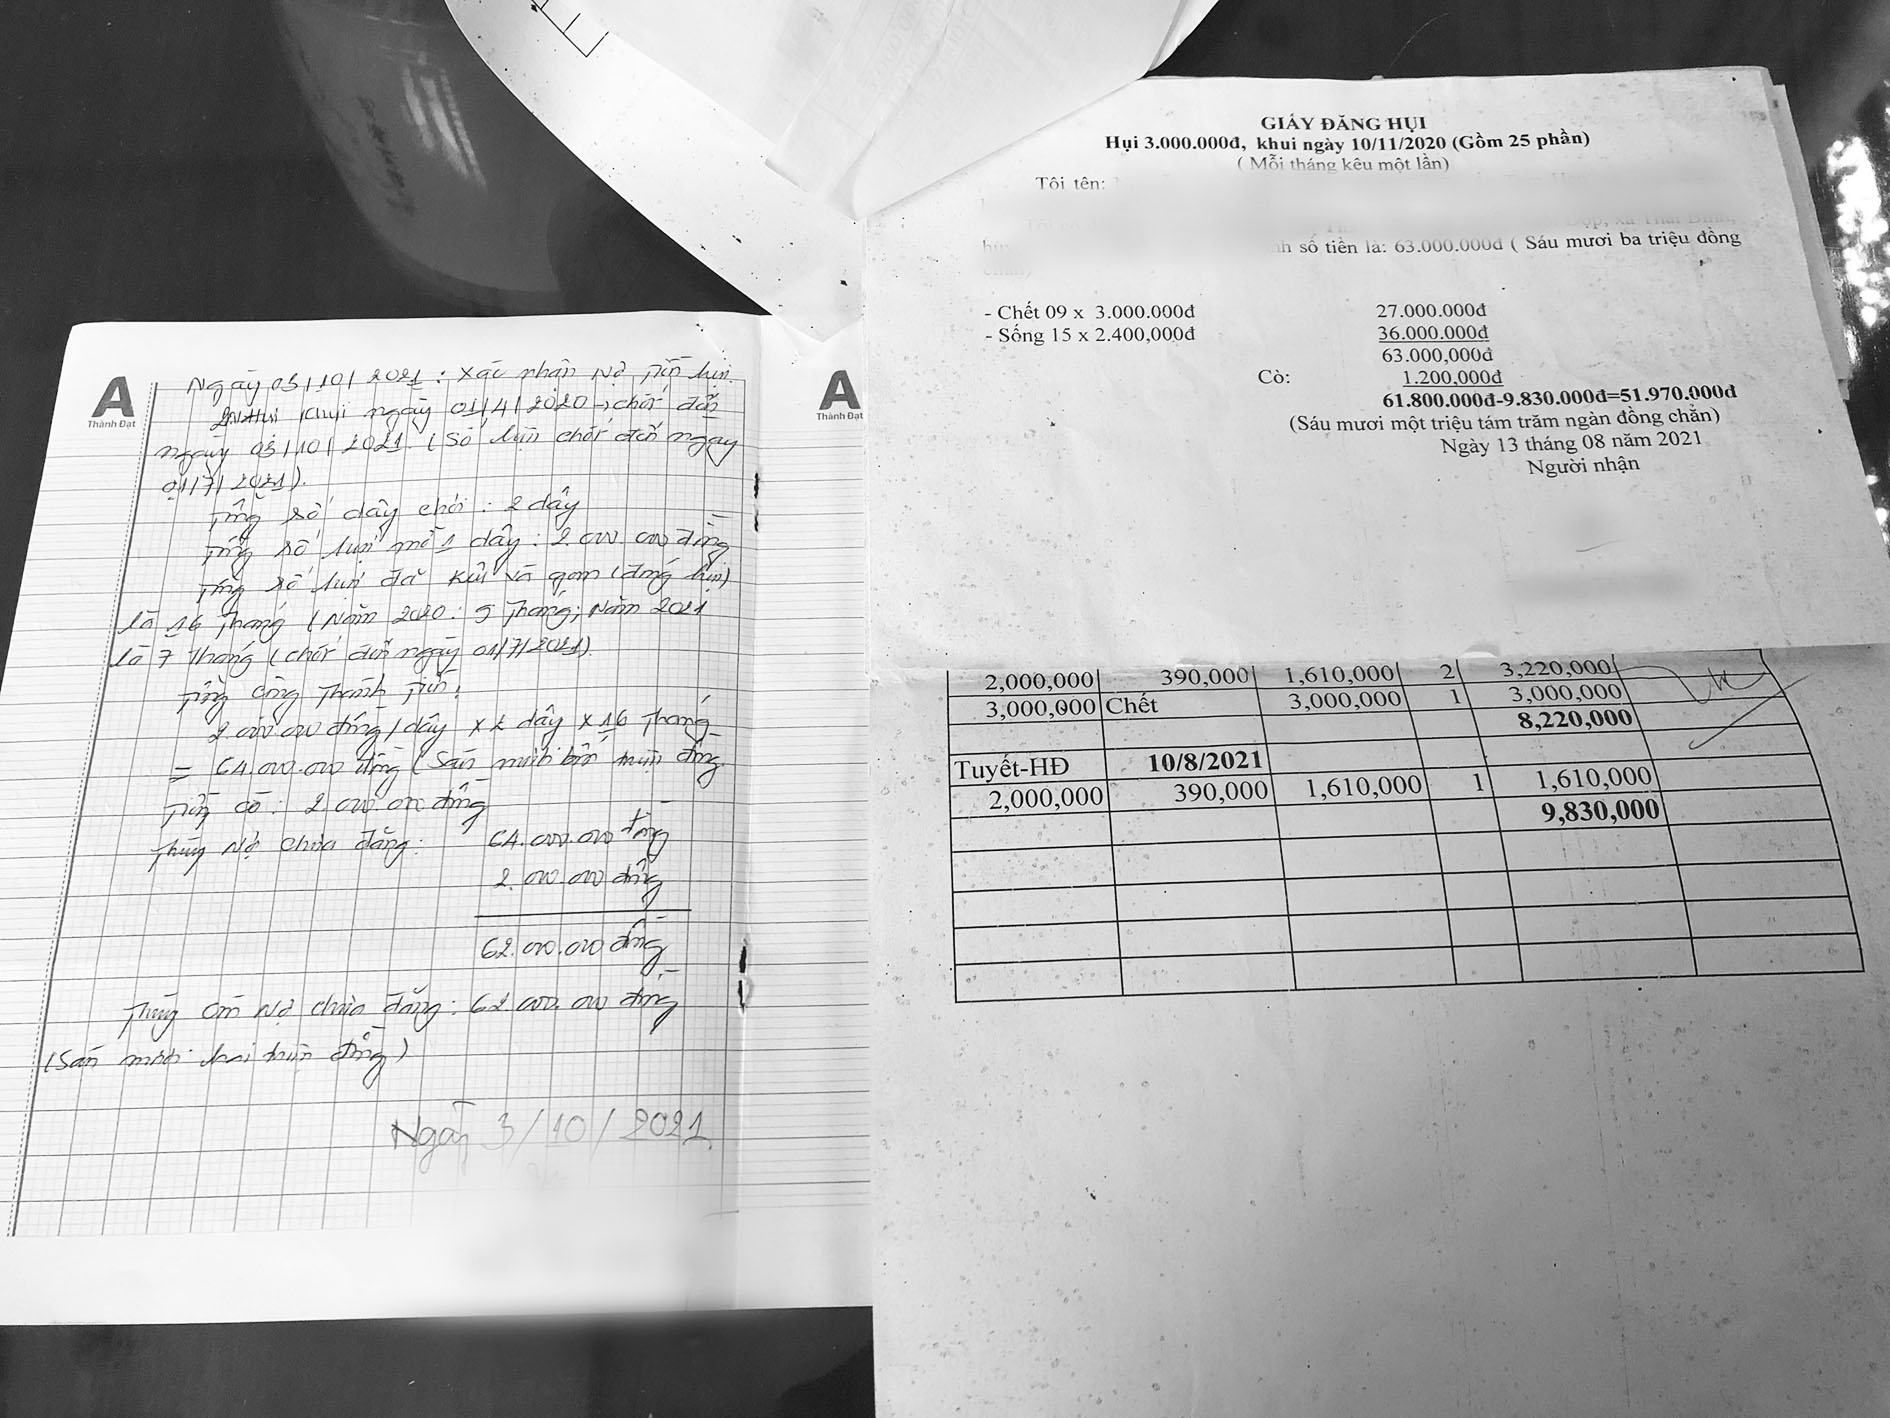 A
Thành Đạt
Ngày 03/10/2021: Xác nhận Nợ Tiền hụi.
Hụi khui ngày 01/4/2020 → chót đến
ngày 03/10/2021 (Số hụi chót đến ngày
01/7/2021).
Tổng số dây chơi: 2 dây
Tổng số hụi mỗi 1 dây: 2.000.000 đồng
Tổng số hụi đã khui và gom (đóng hụi)
là 16 Tháng (Năm 2020: 9 Tháng; Năm 2021
là 7 Tháng (chót đến ngày 01/7/2021).
Tổng cộng Thành Tiền:
2.000.000 đồng/dây x 2 dây x 16 Tháng
= 64.000.000 đồng (Sáu mươi bốn triệu đồng
Tiền cò: 2.000.000 đồng
Thùy Nợ chưa đăng: 64.000.000 đồng
2.000.000 đồng
62.000.000 đồng
còn Nợ chưa đăng: 62.000.000 đồng
(Sáu mươi hai triệu đồng)
Ngày 3/10/2021
A
Thành Đạt
GIẤY ĐĂNG HỤI
Hụi 3.000.000đ, khui ngày 10/11/2020 (Gồm 25 phần)
( Mỗi tháng kêu một lần)
Tôi tên:
số tiền là: 63.000.000đ ( Sáu mươi ba triệu đồng
chẵn)
- Chết 09 x 3.000.000đ 27.000.000đ
- Sống 15 x 2.400,000đ 36.000.000đ
63.000,000đ
Cò: 1.200,000đ
61.800.000đ-9.830.000đ=51.970.000đ
(Sáu mươi một triệu tám trăm ngàn đồng chẵn)
Ngày 13 tháng 08 năm 2021
Người nhận
2,000,000 390,000 1,610,000 2 3,220,000
3,000,000 Chết 3,000,000 1 3,000,000
8,220,000
Tuyết-HĐ 10/8/2021
2,000,000 390,000 1,610,000 1 1,610,000
9,830,000